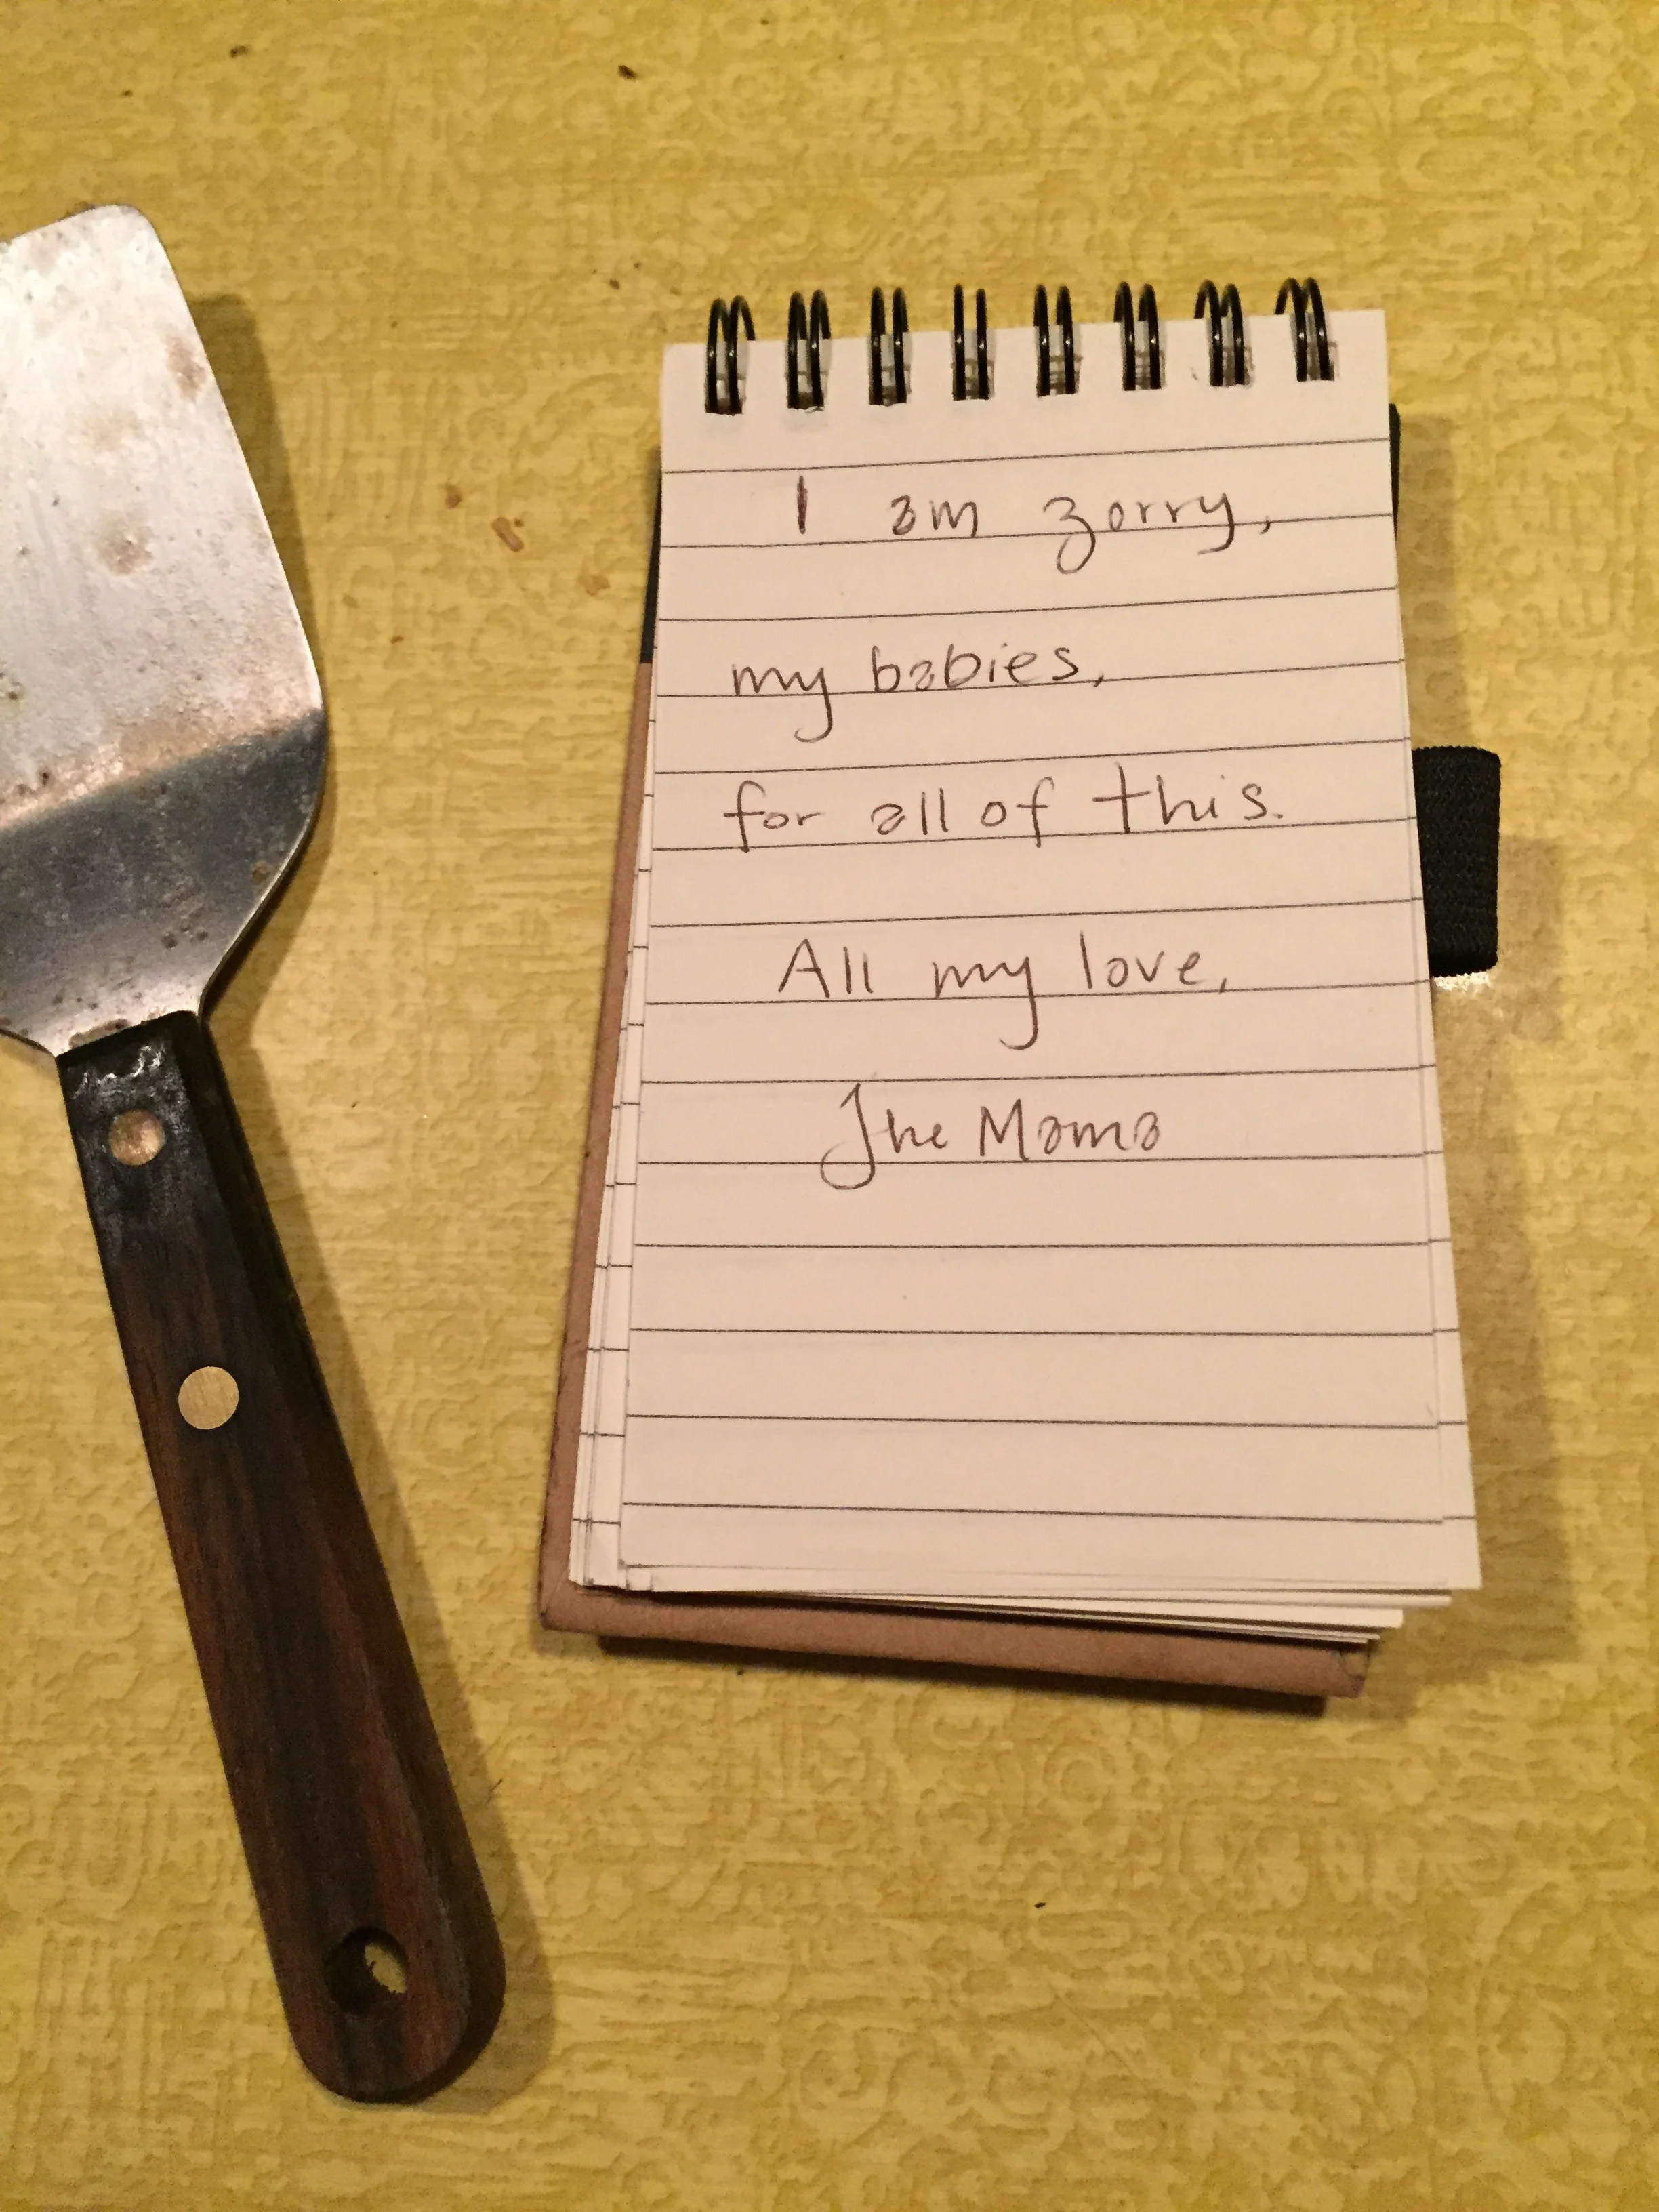 I am zorry,
my babies,
for all of this.
All my love,
The Mama